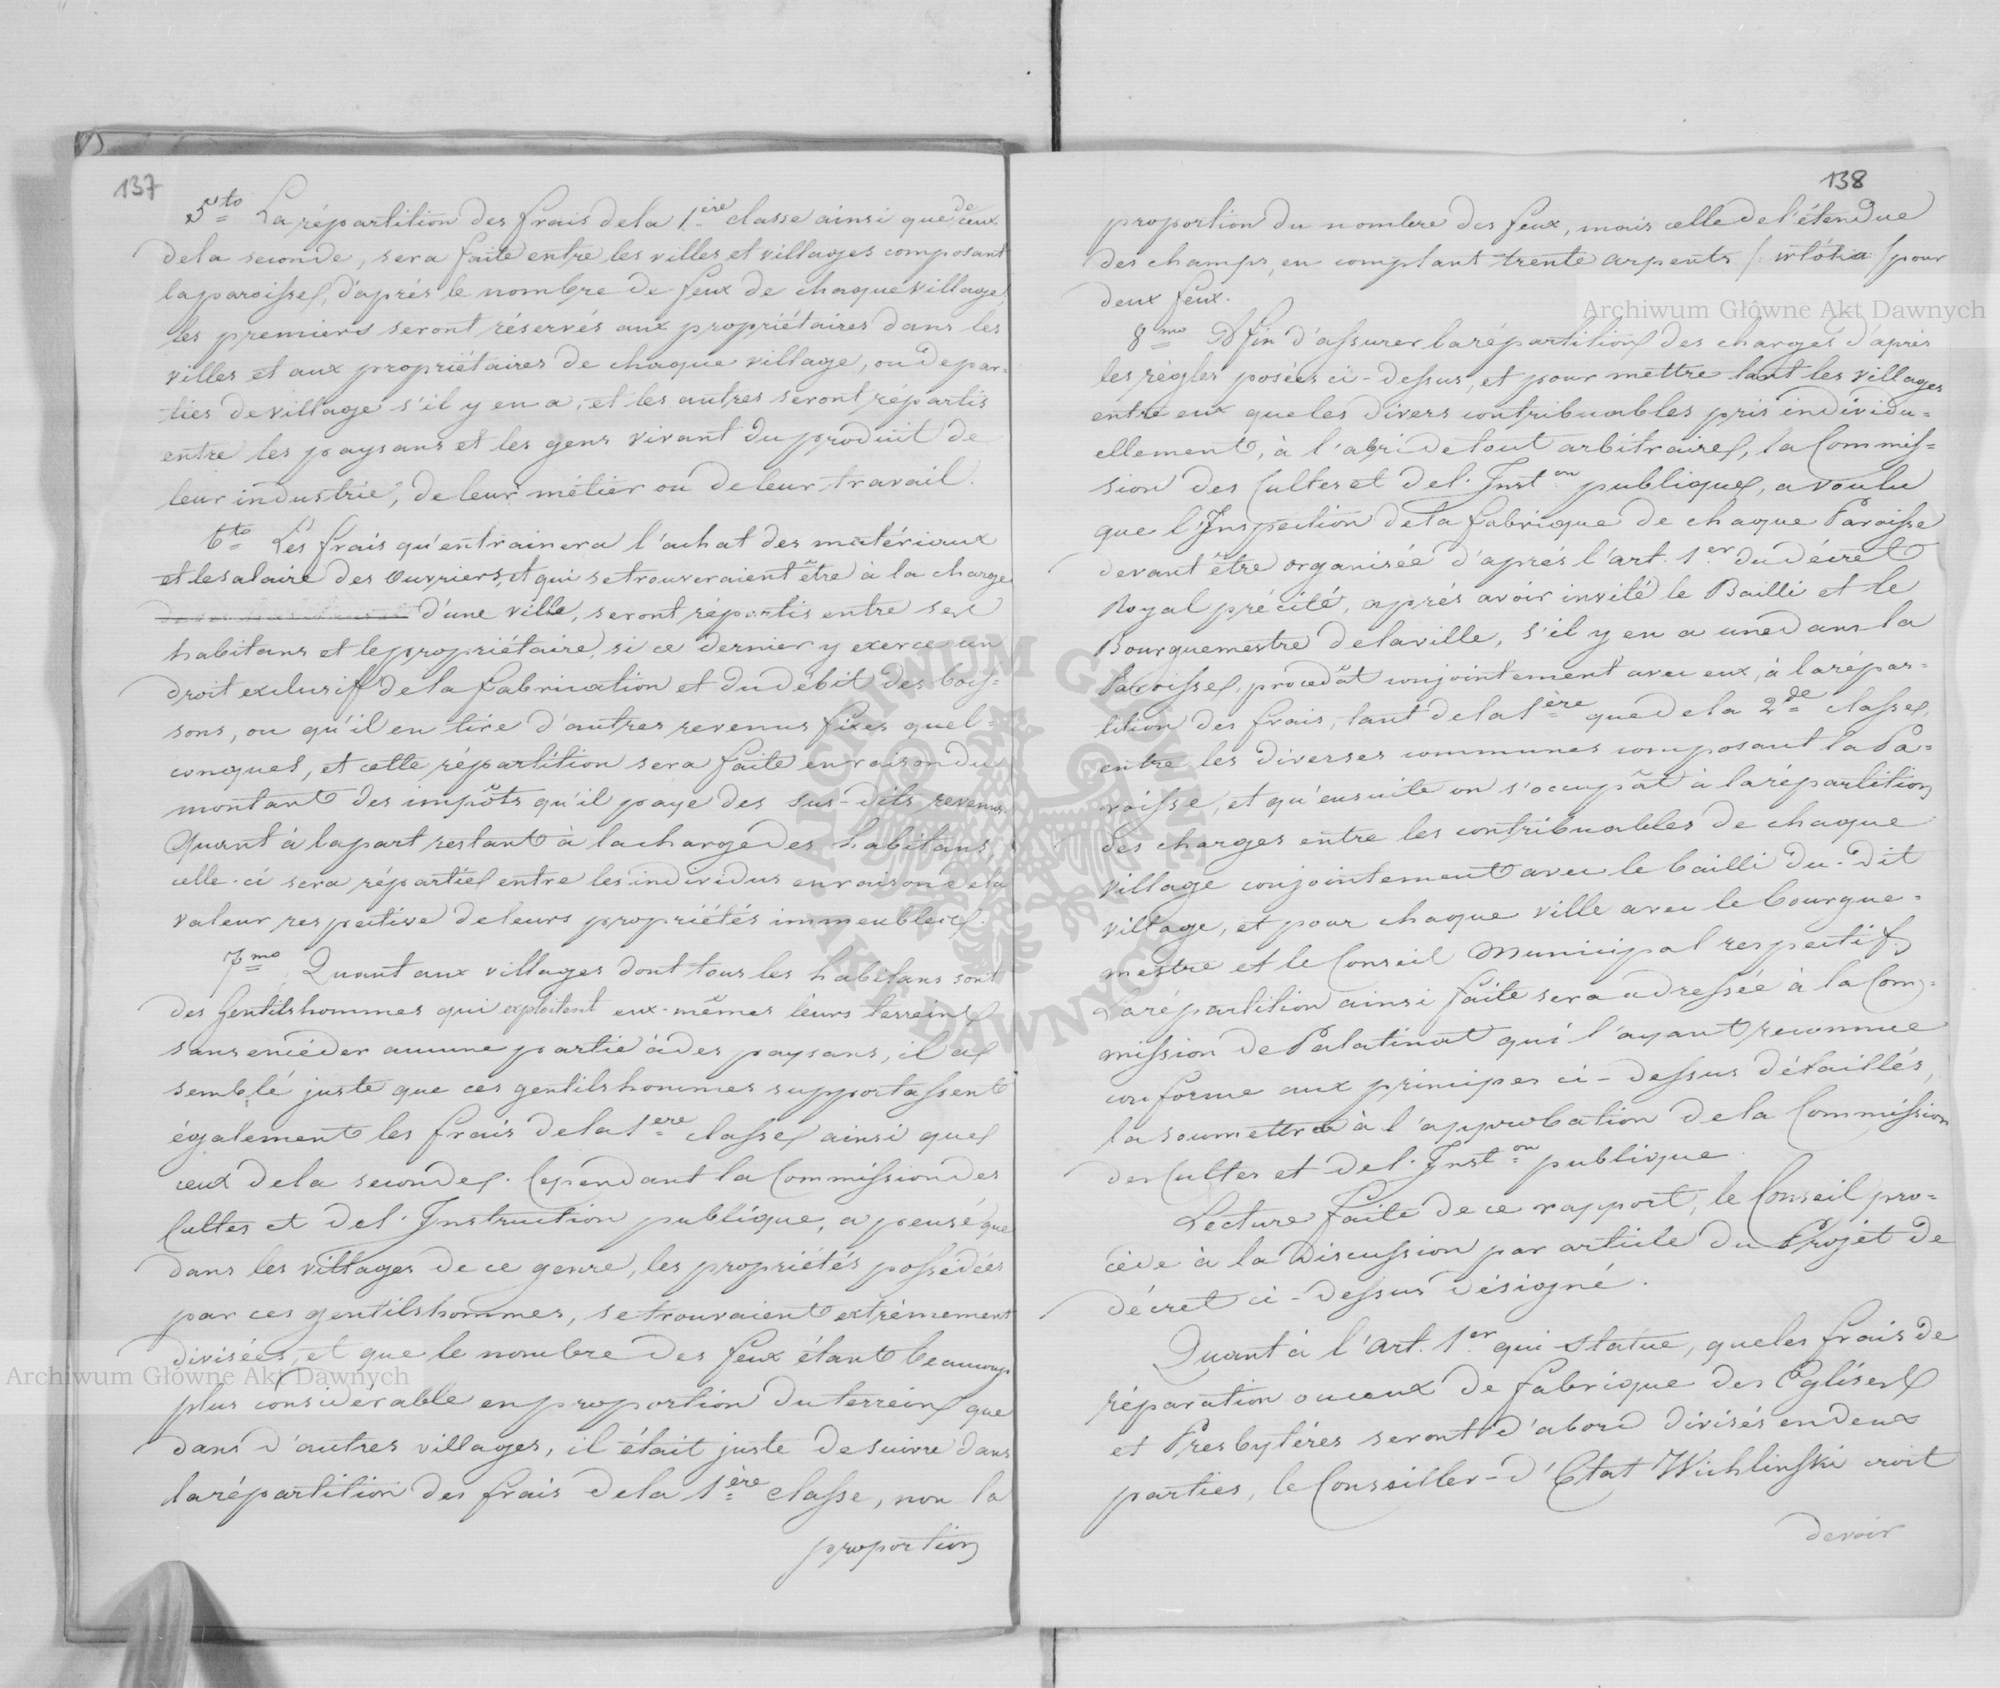 137
5to La répartition des frais de la 1ère classe ainsi que de ceux
de la seconde, sera faite entre les villes et villages composant
la paroisse, d'après le nombre de feux de chaque village,
les premiers seront réservés aux propriétaires dans les
villes et aux propriétaires de chaque village, ou de par-
ties de village s'il y en a, et les autres seront répartis
entre les paysans et les gens vivant du produit de
leur industrie, de leur métier ou de leur travail.
6to Les frais qu'entrainera l'achat des matériaux
et le salaire des ouvriers, et qui se trouveraient être à la charge
d'une ville, seront répartis entre ses
habitans et le propriétaire, si ce dernier y exerce un
droit exclusif de la fabrication et du débit des bois-
sons, ou qu'il en tire d'autres revenus fixes quel-
conques, et cette répartition sera faite en raison du
montant des impôts qu'il paye des sus-dits revenus.
Quant à la part restant à la charge des habitans,
celle-ci sera répartie entre les individus en raison de la
valeur respective de leurs propriétés immeubles.
7mo Quant aux villages dont tous les habitans sont
des gentilshommes qui exploitent eux-mêmes leurs terreins
sans en céder aucune partie à des paysans, il a
semblé juste que ces gentilshommes supportassent
également les frais de la 1ère classe ainsi que
ceux de la seconde. Cependant la Commission des
Cultes et de l'Instruction publique, a pensé que
dans les villages de ce genre, les propriétés possédées
par ces gentilshommes, se trouvaient extrêmement
divisées, et que le nombre des feux étant beaucoup
plus considérable en proportion du terrein que
dans d'autres villages, il était juste de suivre dans
la répartition des frais de la 1ère classe, non la
proportion
138
proportion du nombre des feux, mais celle de l'étendue
des champs, en comptant trente arpents /: włóka :/ pour
deux feux.
8mo Afin d'assurer la répartition des charges d'après
les règles posées ci-dessus, et pour mettre tant les villages
entre eux que les divers contribuables pris individu-
ellement, à l'abri de tout arbitraire, la Commis-
sion des Cultes et de l'Inston publique, a voulu
que l'Inspection de la fabrique de chaque Paroisse
devant être organisée d'après l'art. 1er du décret
Royal précité, après avoir invité le Bailli et le
Bourguemestre de la ville, s'il y en a une dans la
Paroisse, procedât conjointement avec eux, à la répar-
tition des frais, tant de la 1ère que de la 2de classe,
entre les diverses communes composant la Pa-
roisse, et qu'ensuite on s'occupât à la répartition
des charges entre les contribuables de chaque
village conjointement avec le bailli du-dit
village, et pour chaque ville avec le bourgue-
mestre et le Conseil Municipal respectif.
La répartition ainsi faite sera adressée à la Com-
mission de Palatinat qui l'ayant reconnue
conforme aux principes ci-dessus détaillés,
la soumettra à l'approbation de la Commission
des Cultes et de l'Inston publique.
Lecture faite de ce rapport, le Conseil pro-
cède à la discussion par article du Projet de
décret ci-dessus désigné.
Quant à l'art. 1er qui statue, que les frais de
réparation ou ceux de fabrique des Eglises
et Presbytères seront d'abord divisés en deux
parties, le Conseiller-d'Etat Wichlinski croit
devoir
Archiwum Główne Akt Dawnych
Archiwum Główne Akt Dawnych
ARCHIWUM GŁÓWNE AKT DAWNYCH